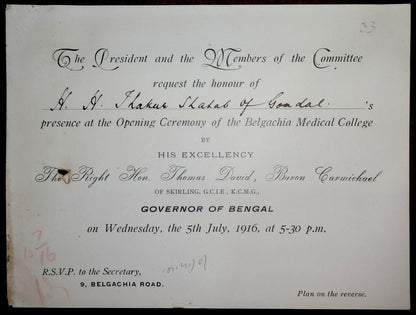 23
The President and the Members of the Committee
request the honour of
H. H. Thakur Shahab of Gondal 's
presence at the Opening Ceremony of the Belgachia Medical College
BY
HIS EXCELLENCY
The Right Hon. Thomas David, Baron Carmichael
OF SKIRLING, G.C.I.E., K.C.M.G.,
GOVERNOR OF BENGAL
on Wednesday, the 5th July, 1916, at 5-30 p.m.
R.S.V.P. to the Secretary,
9, BELGACHIA ROAD.
Plan on the reverse.